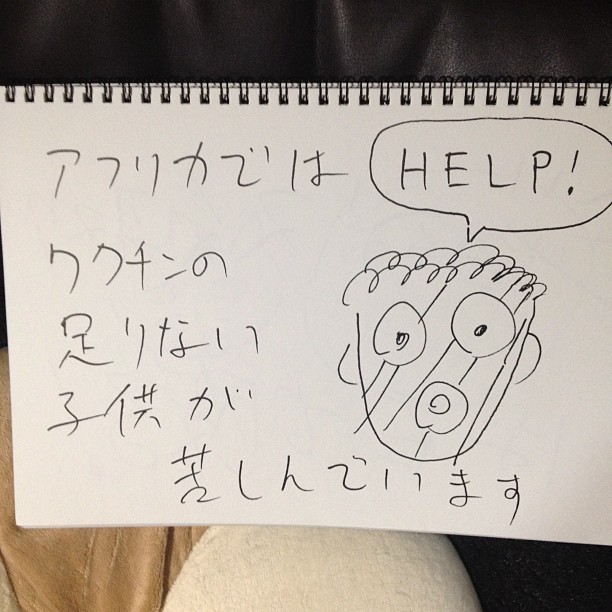 アフリカでは
HELP!
ワクチンの
足りない
子供が
苦しんでいます